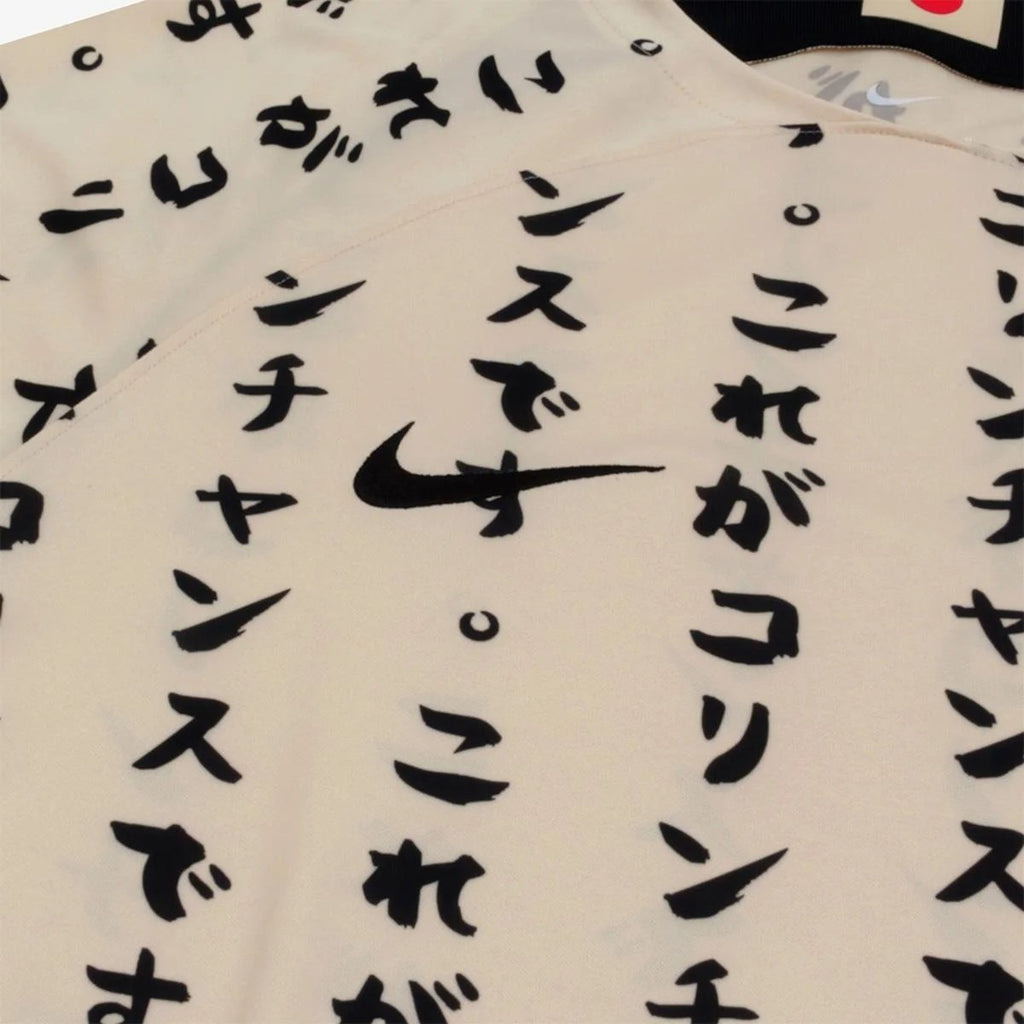 コリンチャンスで
。これがコリンチ
ンスです。これが
ンチャンスです
す。
。これがコリ
ス